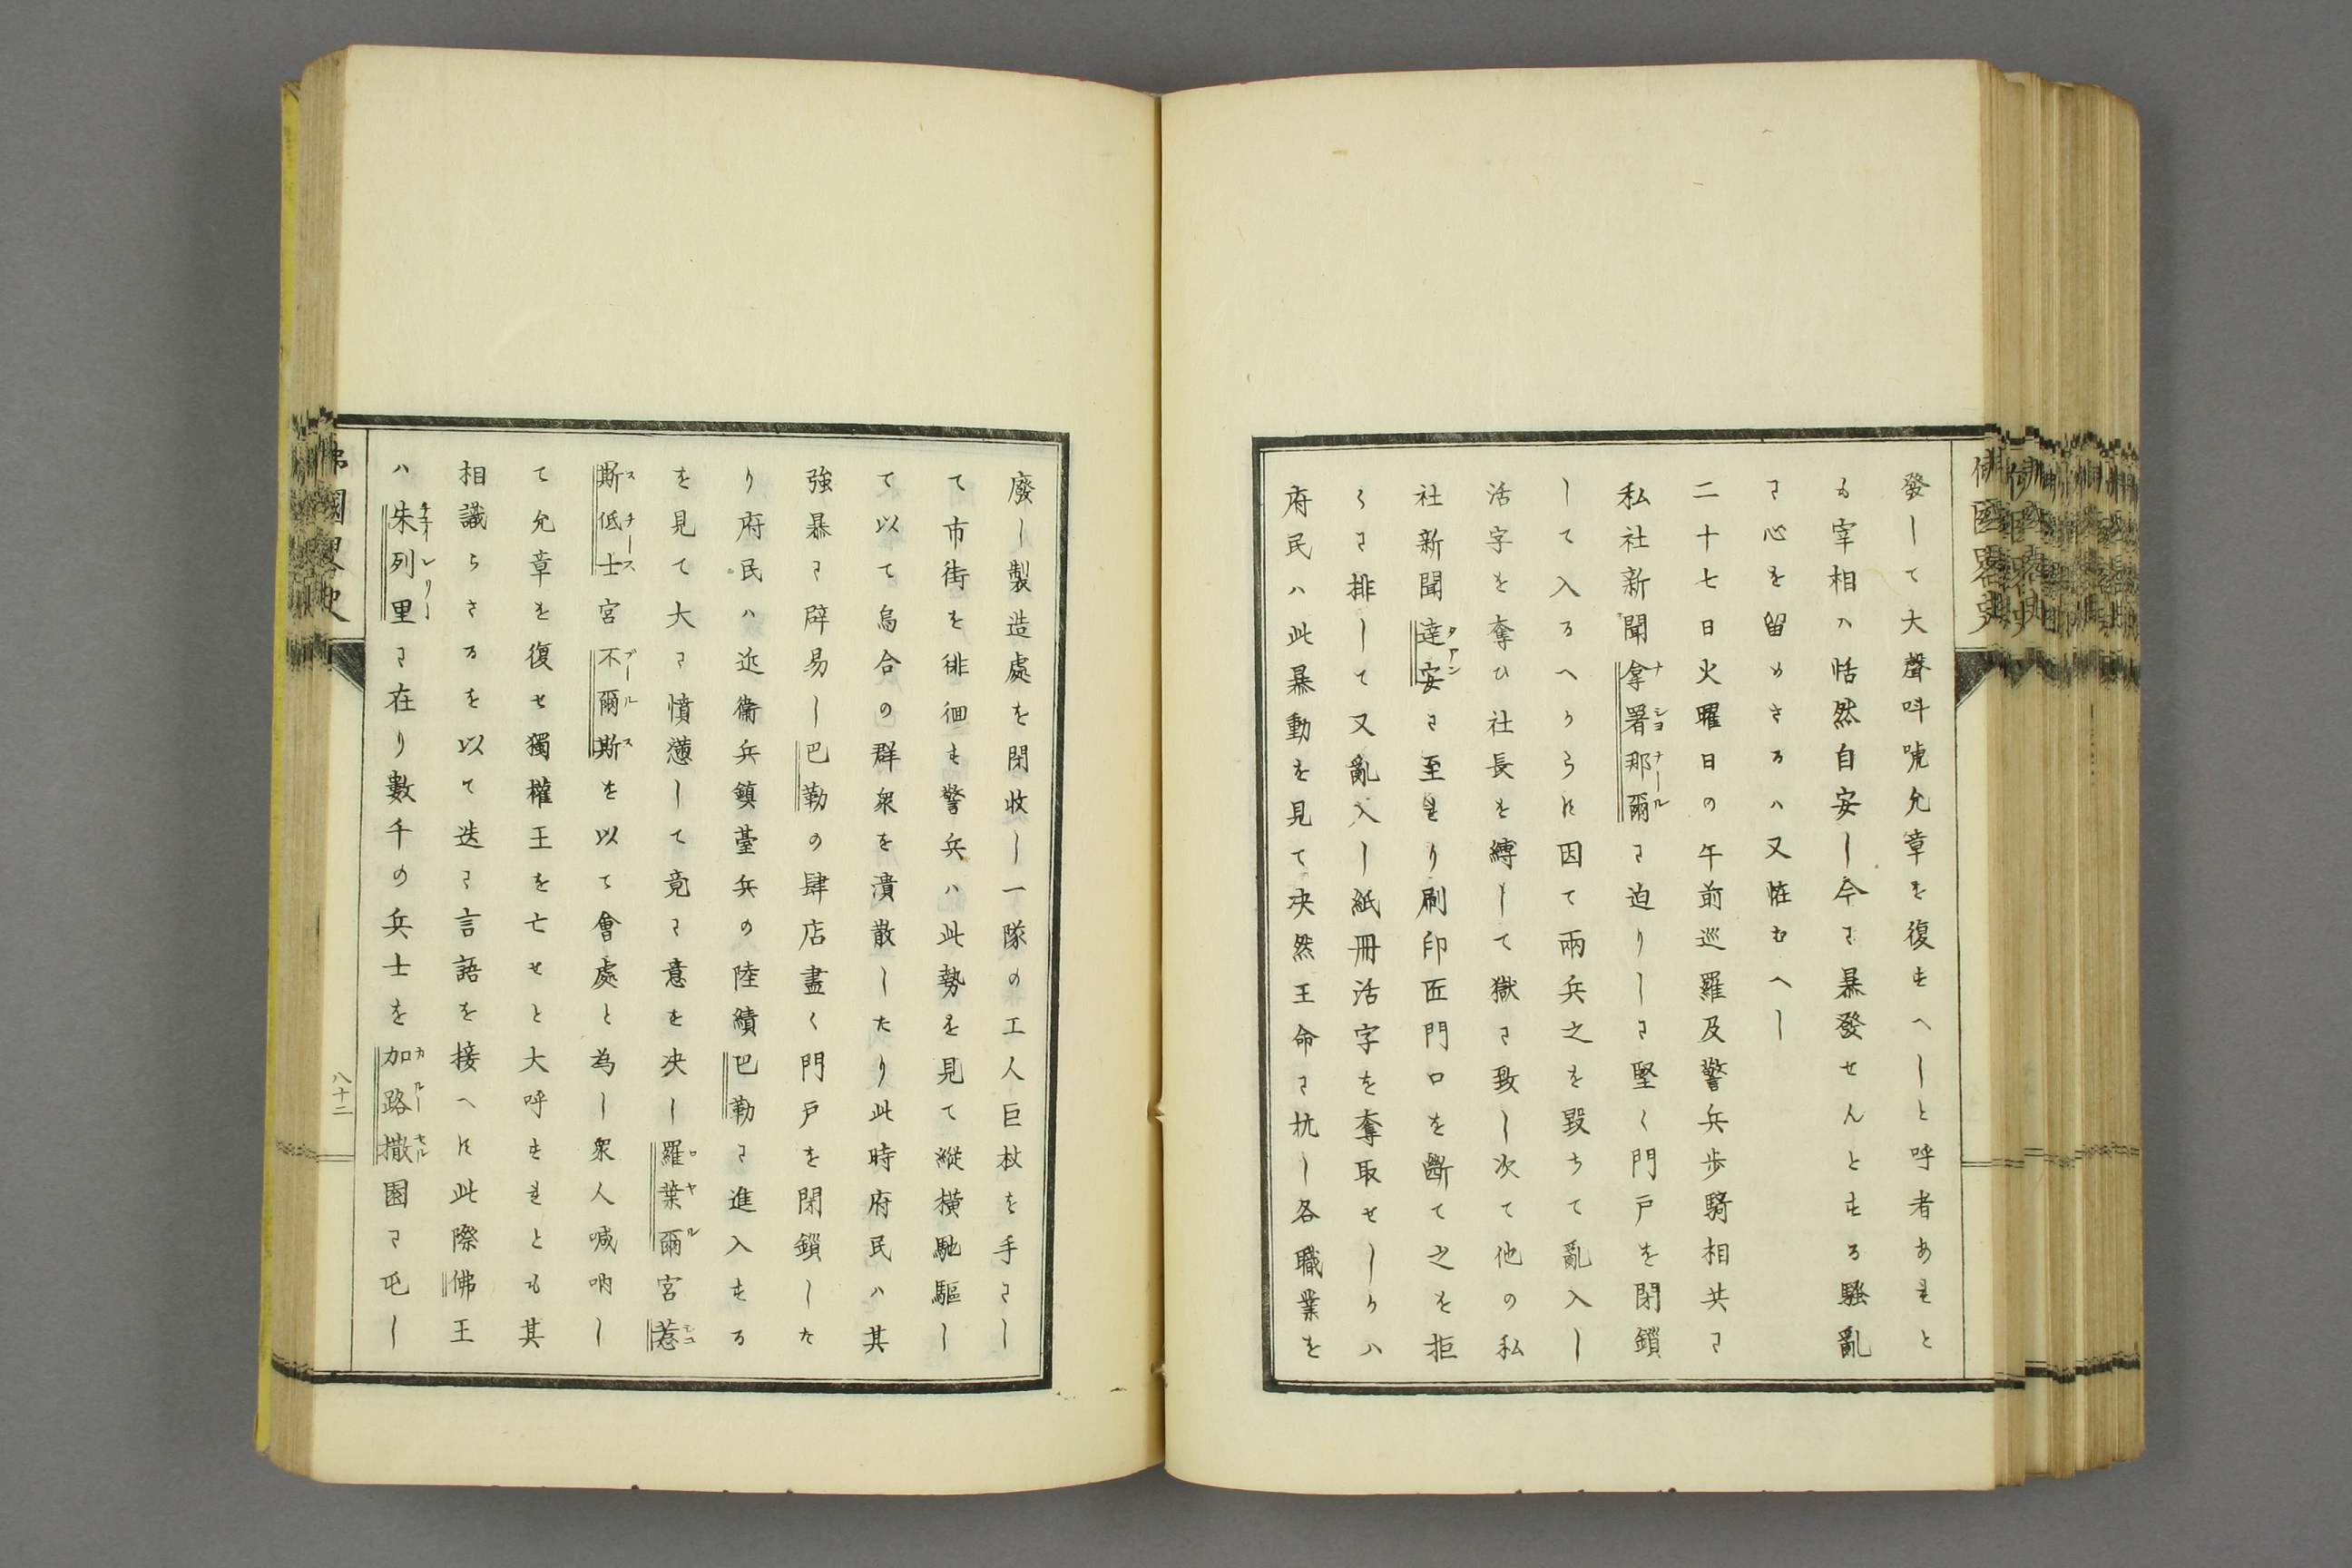 發して大聲呌喨允章を復すへしと呼者あれと
も宰相ハ恬然自安し今に暴發せんとする騷亂
に心を留めさるハ又恠むへし
二十七日火曜日の午前巡羅及警兵歩騎相共に
私社新聞拿署那爾に迫りしに堅く門戸を閉鎖
して入るへからに因て兩兵之を毀ちて亂入し
活字を奪ひ社長を縛して獄に致し次て他の私
社新聞達安に至れり刷印匠門口を斷て之を拒
くに排して又亂入し紙冊活字を奪取せしかハ
府民ハ此暴動を見て决然王命に抗し各職業を
廢し製造處を閉收し一隊の工人巨杖を手にし
て市街を徘徊す警兵ハ此勢を見て縱橫馳驅し
て以て烏合の群衆を潰散したり此時府民ハ其
強暴に辟易し巴勒の肆店盡く門戸を閉鎖した
り府民ハ近衞兵鎮臺兵の陸續巴勒に進入する
を見て大に憤懣して竟に意を决し羅葉爾宮惹
斯低士宮不爾斯を以て會處と為し衆人喊吶し
て允章を復せ獨權王を亡せと大呼すれとも其
相識らさるを以て迭に言語を接へに此際佛王
ハ朱列里に在り數千の兵士を加路撒園に屯し
佛國畧史
八十二